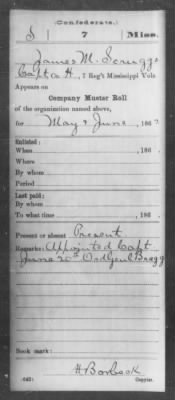 (Confederate.)
S 7 Miss.
James M. Scruggs
Capt, Co. H, 7 Reg't Mississippi Vols
Appears on
Company Muster Roll
of the organization named above,
for May & June, 186
Enlisted:
When , 186 .
Where
By whom
Period
Last paid:
By whom
To what time , 186 .
Present or absent Present
Remarks: Appointed Capt
June 20th Ord Genl Bragg
Book mark:
(642) Copyist.